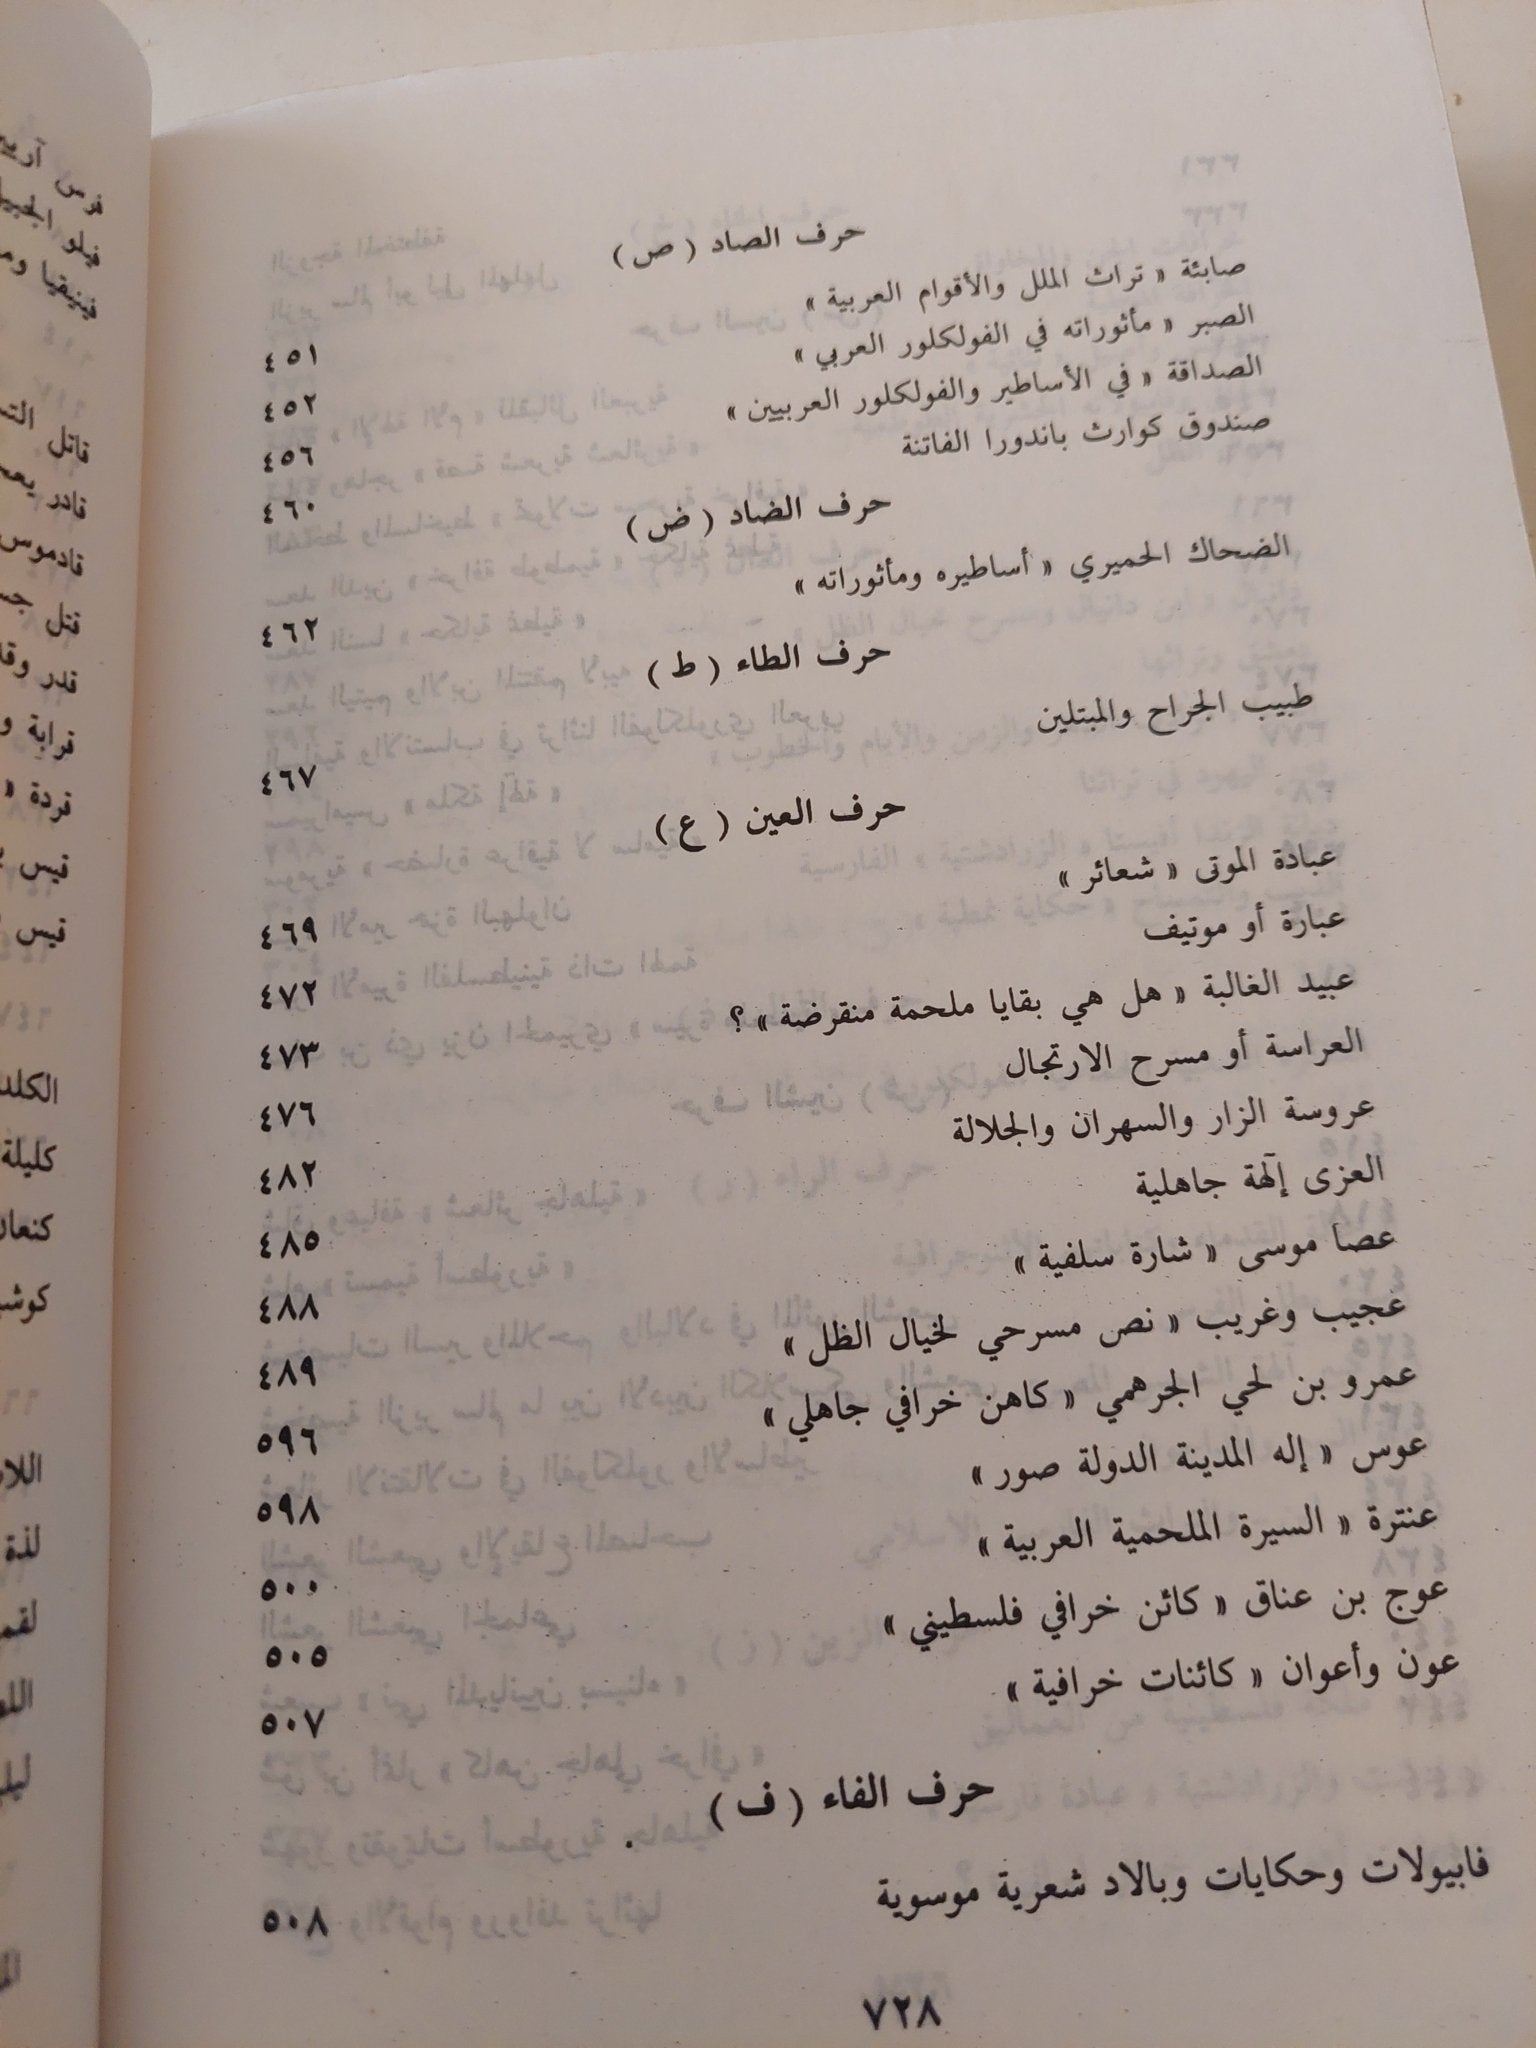 حرف الصاد ( ص )
صابئة « تراث الملل والأقوام العربية » ٤٥١
الصبر « مأثوراته في الفولكلور العربي » ٤٥٢
الصداقة « في الأساطير والفولكلور العربيين » ٤٥٦
صندوق كوارث باندورا الفاتنة ٤٦٠
حرف الضاد ( ض )
الضحاك الحميري « أساطيره ومأثوراته » ٤٦٢
حرف الطاء ( ط )
طبيب الجراح والمبتلين ٤٦٧
حرف العين ( ع )
عبادة الموتى « شعائر » ٤٦٩
عبارة أو موتيف ٤٧٢
عبيد الغالبة « هل هي بقايا ملحمة منقرضة » ؟ ٤٧٣
العراسة أو مسرح الارتجال ٤٧٦
عروسة الزار والسهران والجلالة ٤٨٢
العزى إلهة جاهلية ٤٨٥
عصا موسى « شارة سلفية » ٤٨٨
عجيب وغريب « نص مسرحي لخيال الظل » ٤٨٩
عمرو بن لحي الجرهمي « كاهن خرافي جاهلي » ٥٩٦
عوس « إله المدينة الدولة صور » ٥٩٨
عنترة « السيرة الملحمية العربية » ٥٠٠
عوج بن عناق « كائن خرافي فلسطيني » ٥٠٥
عون وأعوان « كائنات خرافية » ٥٠٧
حرف الفاء ( ف )
فابيولات وحكايات وبالاد شعرية موسوية ٥٠٨
٧٢٨
فرس
فيلو
فينيقيا
قاتل
قادر
قادموس
قتل
قدر
قرابة
قردة «
قيس
قيس
كليلة
لذة